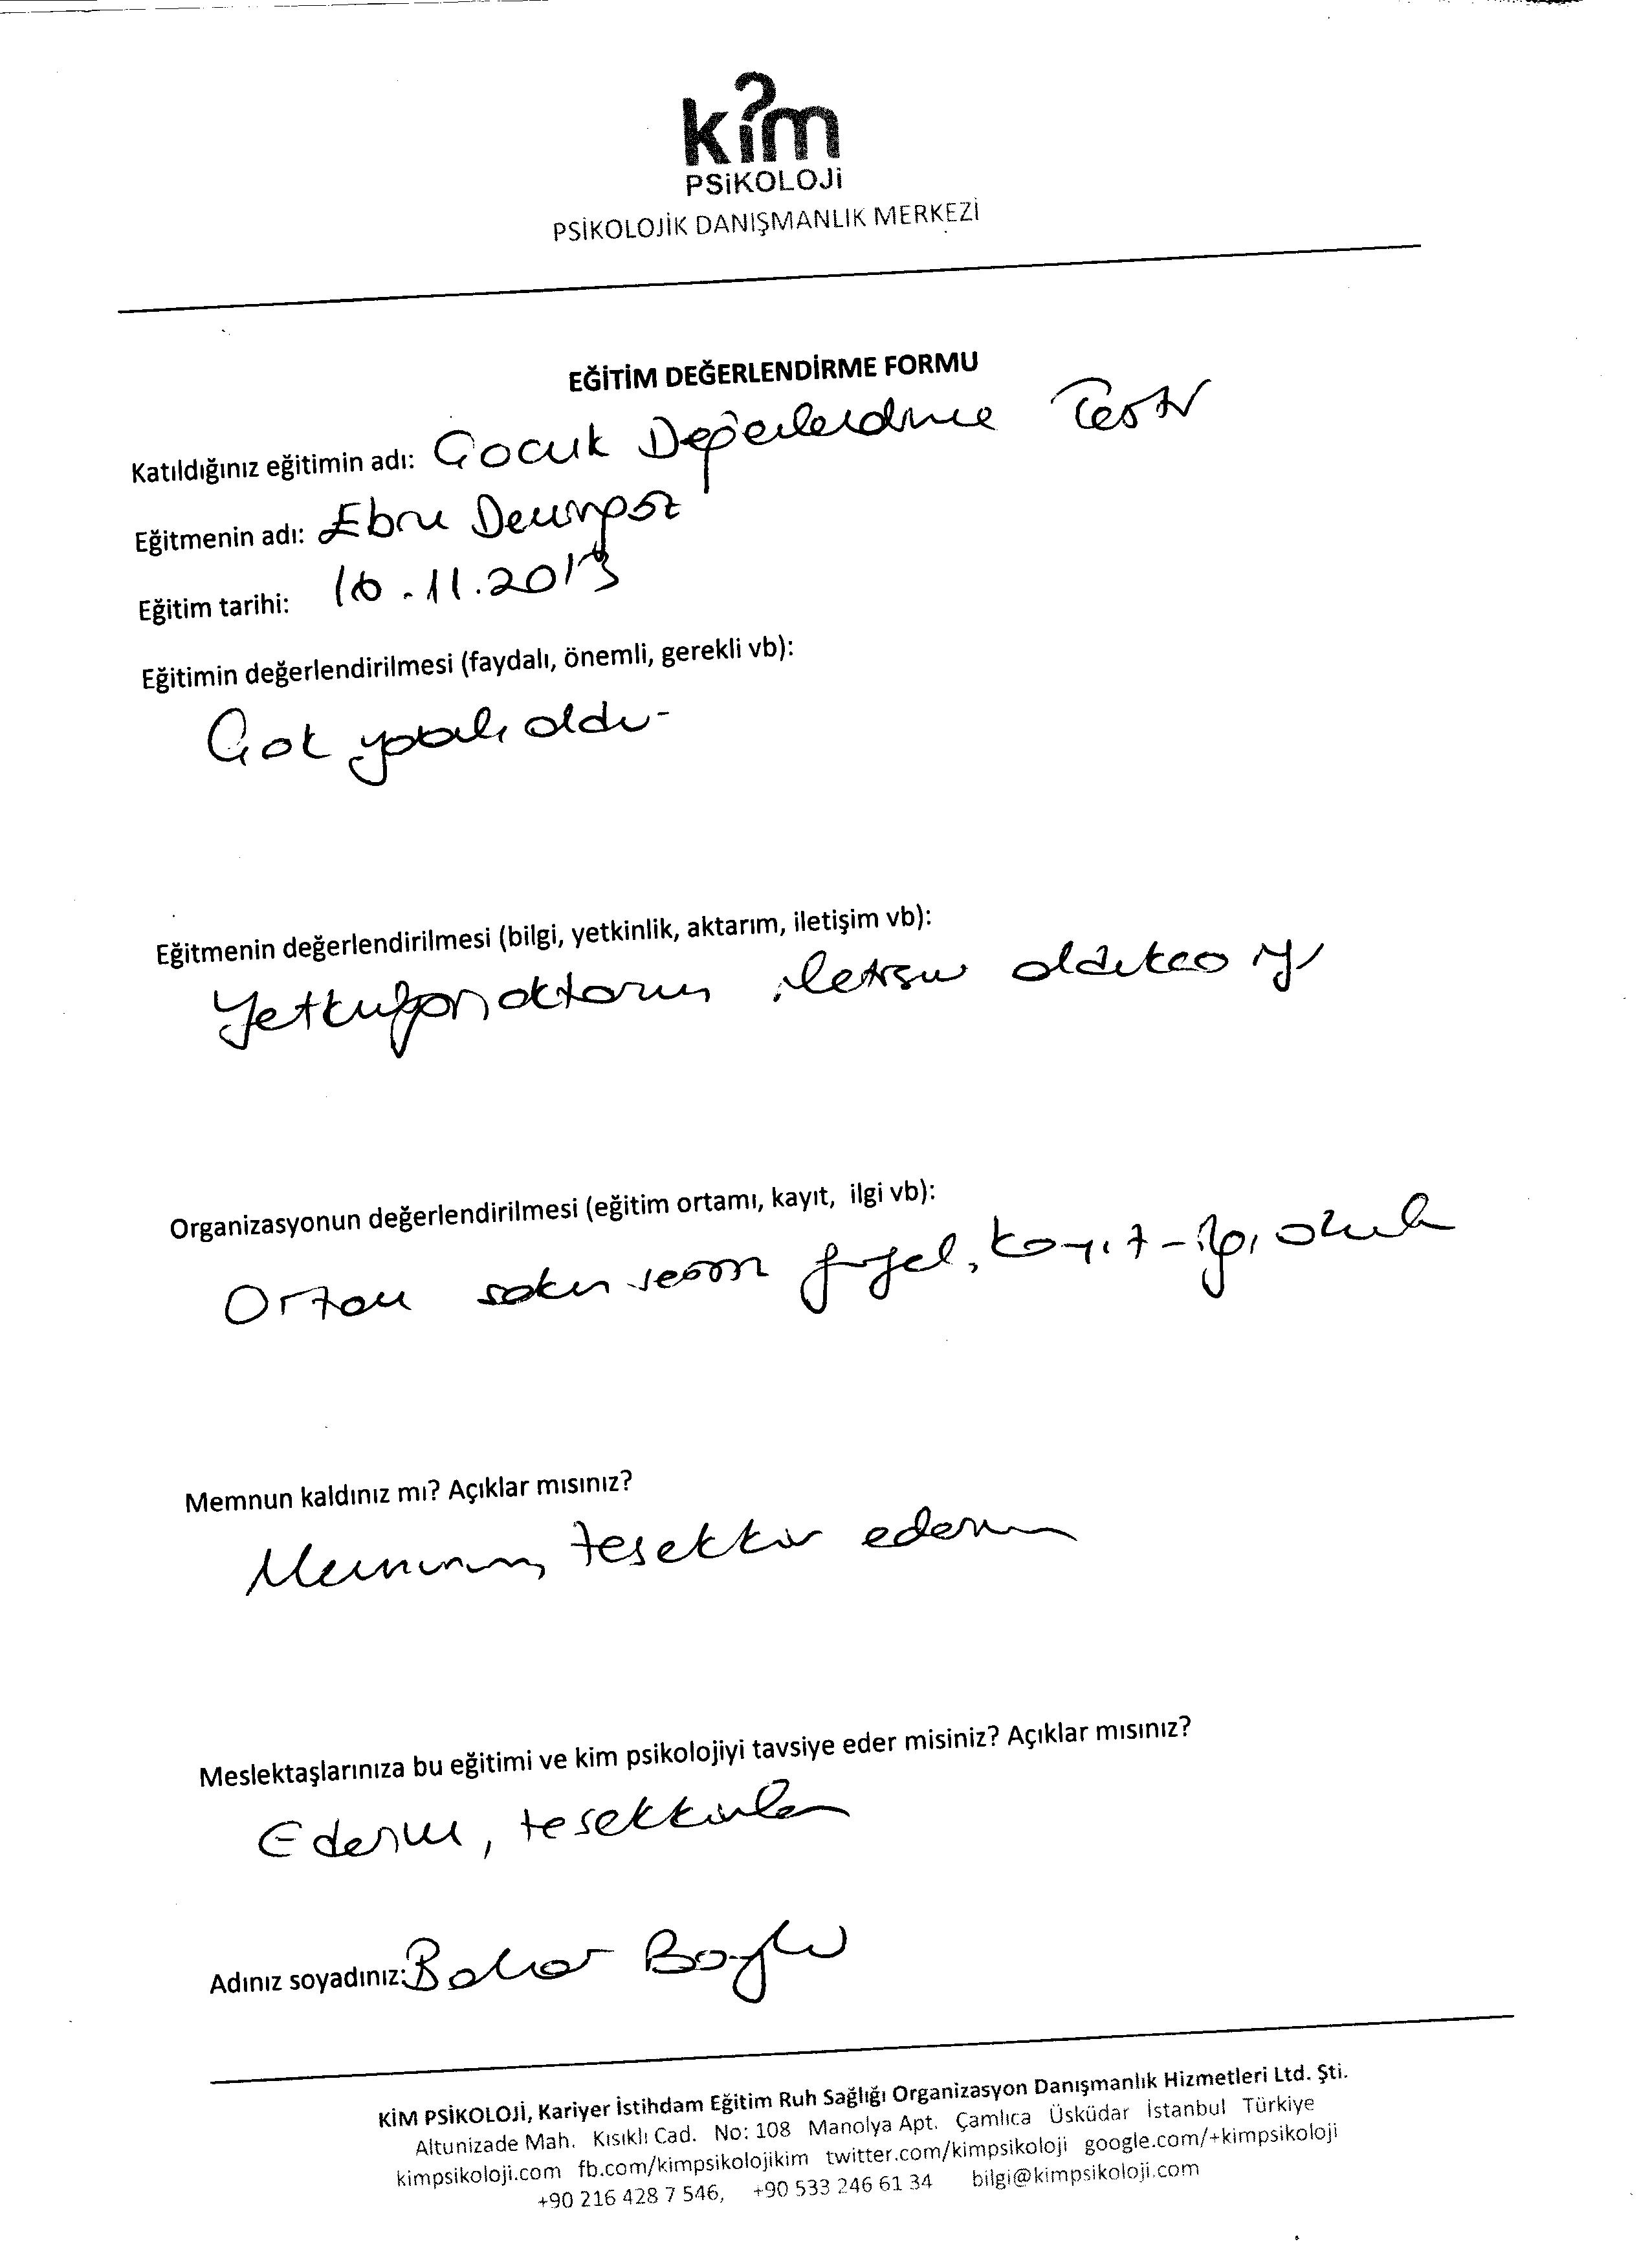 kim
PSiKOLOJi
PSİKOLOJİK DANIŞMANLIK MERKEZİ
EĞİTİM DEĞERLENDİRME FORMU
Katıldığınız eğitimin adı: Çocuk Değerlendirme Testi
Eğitmenin adı: Ebru
Eğitim tarihi: 16.11.2013
Eğitimin değerlendirilmesi (faydalı, önemli, gerekli vb):
Çok yararlı oldu.
Eğitmenin değerlendirilmesi (bilgi, yetkinlik, aktarım, iletişim vb):
aktarım iletişim oldukça iyi
Organizasyonun değerlendirilmesi (eğitim ortamı, kayıt, ilgi vb):
Ortam sakin güzel, kayıt-ilgi
Memnun kaldınız mı? Açıklar mısınız?
Memnunum, teşekkür ederim
Meslektaşlarınıza bu eğitimi ve kim psikolojiyi tavsiye eder misiniz? Açıklar mısınız?
Ederim, teşekkürler
Adınız soyadınız: Bahar
KİM PSİKOLOJİ, Kariyer İstihdam Eğitim Ruh Sağlığı Organizasyon Danışmanlık Hizmetleri Ltd. Şti.
Altunizade Mah. Kısıklı Cad. No: 108 Manolya Apt. Çamlıca Üsküdar İstanbul Türkiye
kimpsikoloji.com fb.com/kimpsikolojikim twitter.com/kimpsikoloji google.com/+kimpsikoloji
+90 216 428 7 546, +90 533 246 61 34 bilgi@kimpsikoloji.com